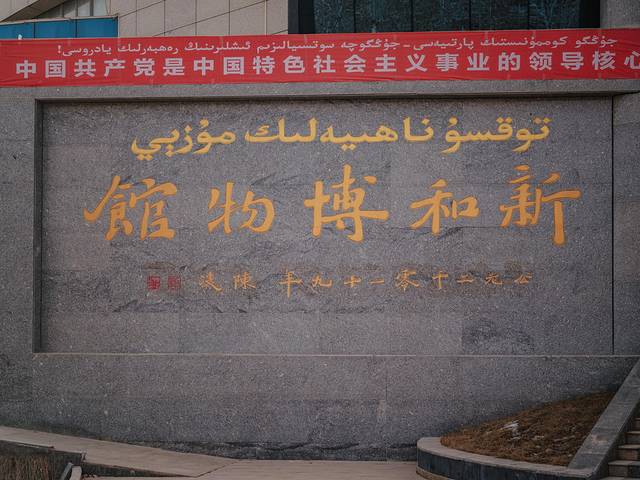 جۇڭگو كوممۇنىستىك پارتىيەسى - جۇڭگوچە سوتسىيالىزم ئىشلىرىنىڭ رەھبەرلىك يادروسى!
中国共产党是中国特色社会主义事业的领导核心
توقسۇ ناھىيەلىك مۇزېيى
新和博物館
公元二千零一十九年 陳